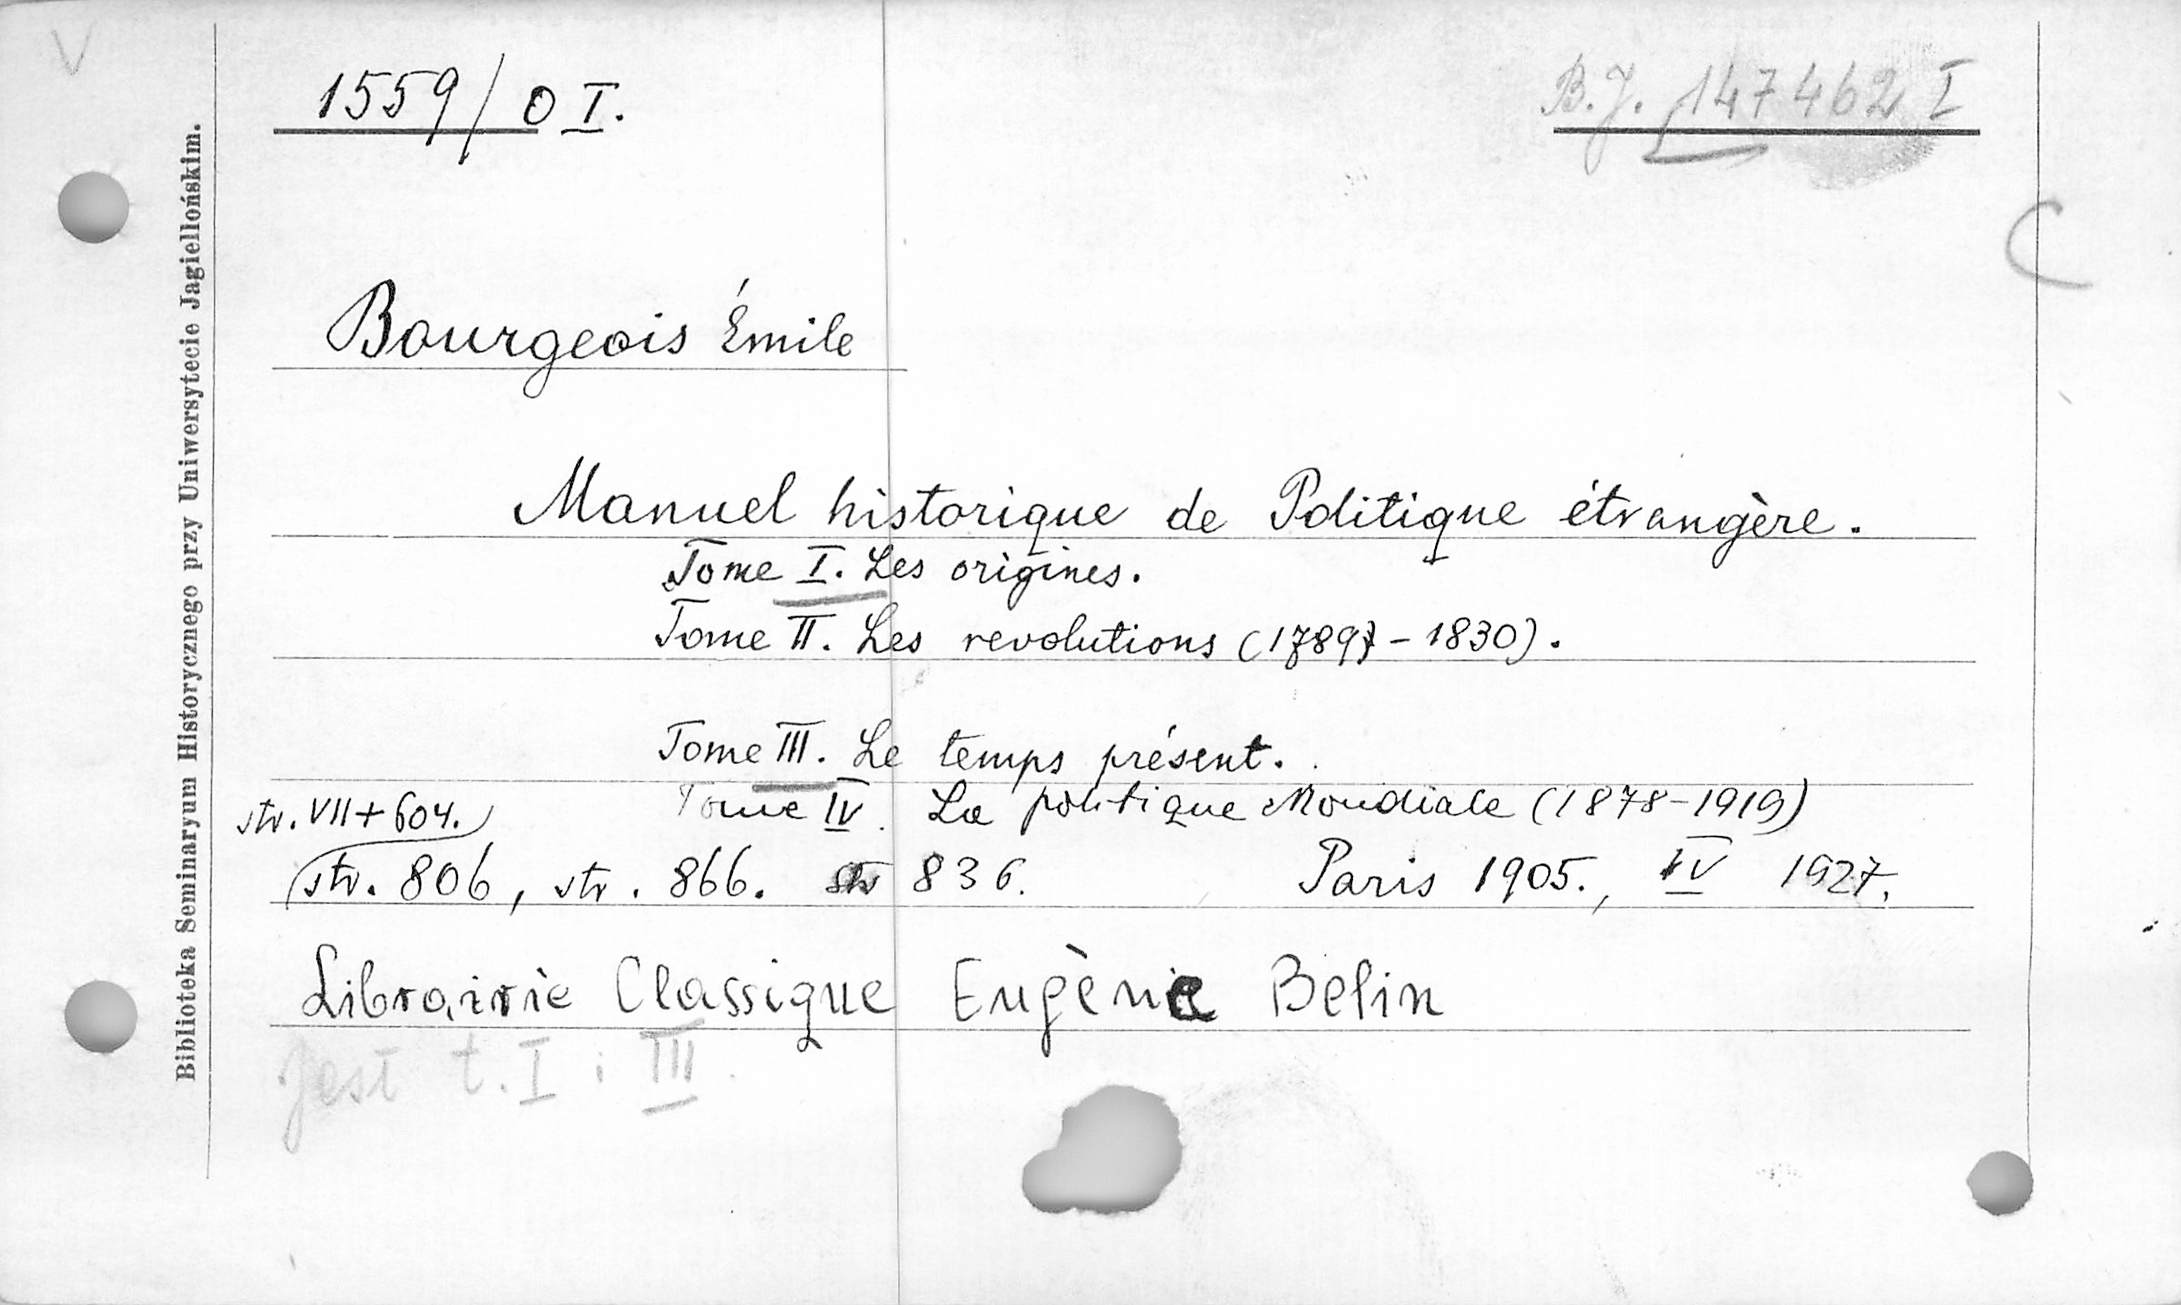 V
1559/0 I.
B.J. 147462 I
C
Bourgeois Émile
Manuel historique de Politique étrangère.
Tome I. Les origines.
Tome II. Les revolutions (1789 - 1830).
Tome III. Le temps présent.
Tome IV. La politique Mondiale (1878-1919)
str. VII + 604.
str. 806, str. 866. str 836. Paris 1905., IV 1927.
Librairie Classique Eugène Belin
Jest t. I i III.
Biblioteka Seminaryum Historycznego przy Uniwersytecie Jagiellońskim.